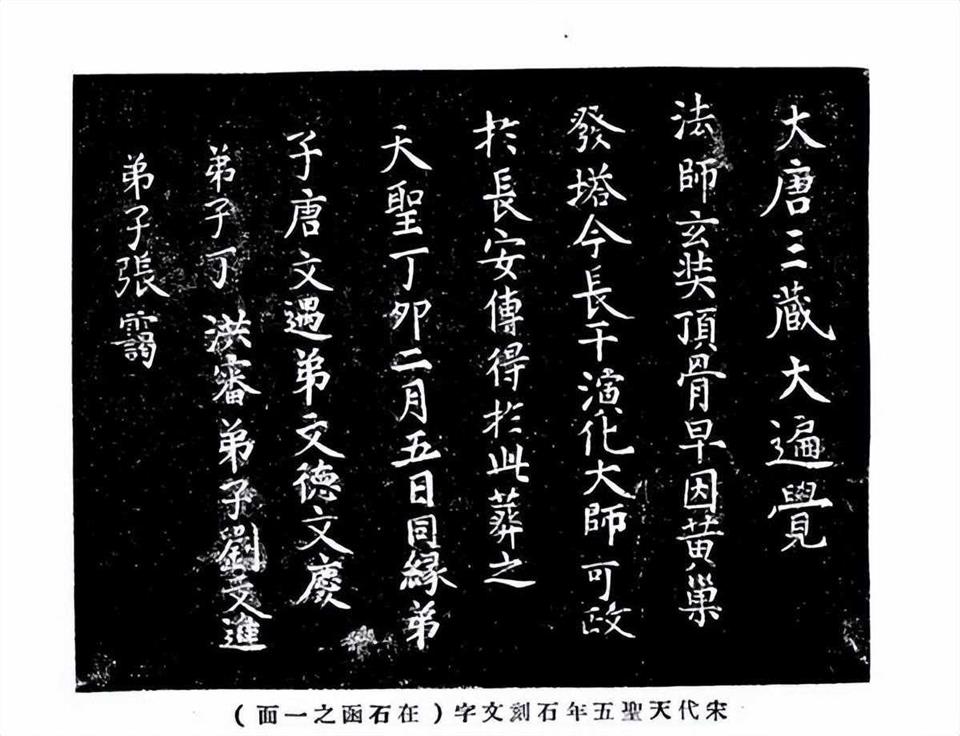 大唐三藏大遍覺
法師玄奘頂骨早因黃巢
發塔今長干演化大師可政
於長安傳得於此葬之
天聖丁卯二月五日同緣弟
子唐文遇弟文德文慶
弟子丁洪審弟子劉文進
弟子張靄
宋代天聖五年石刻文字(在石函之一面)